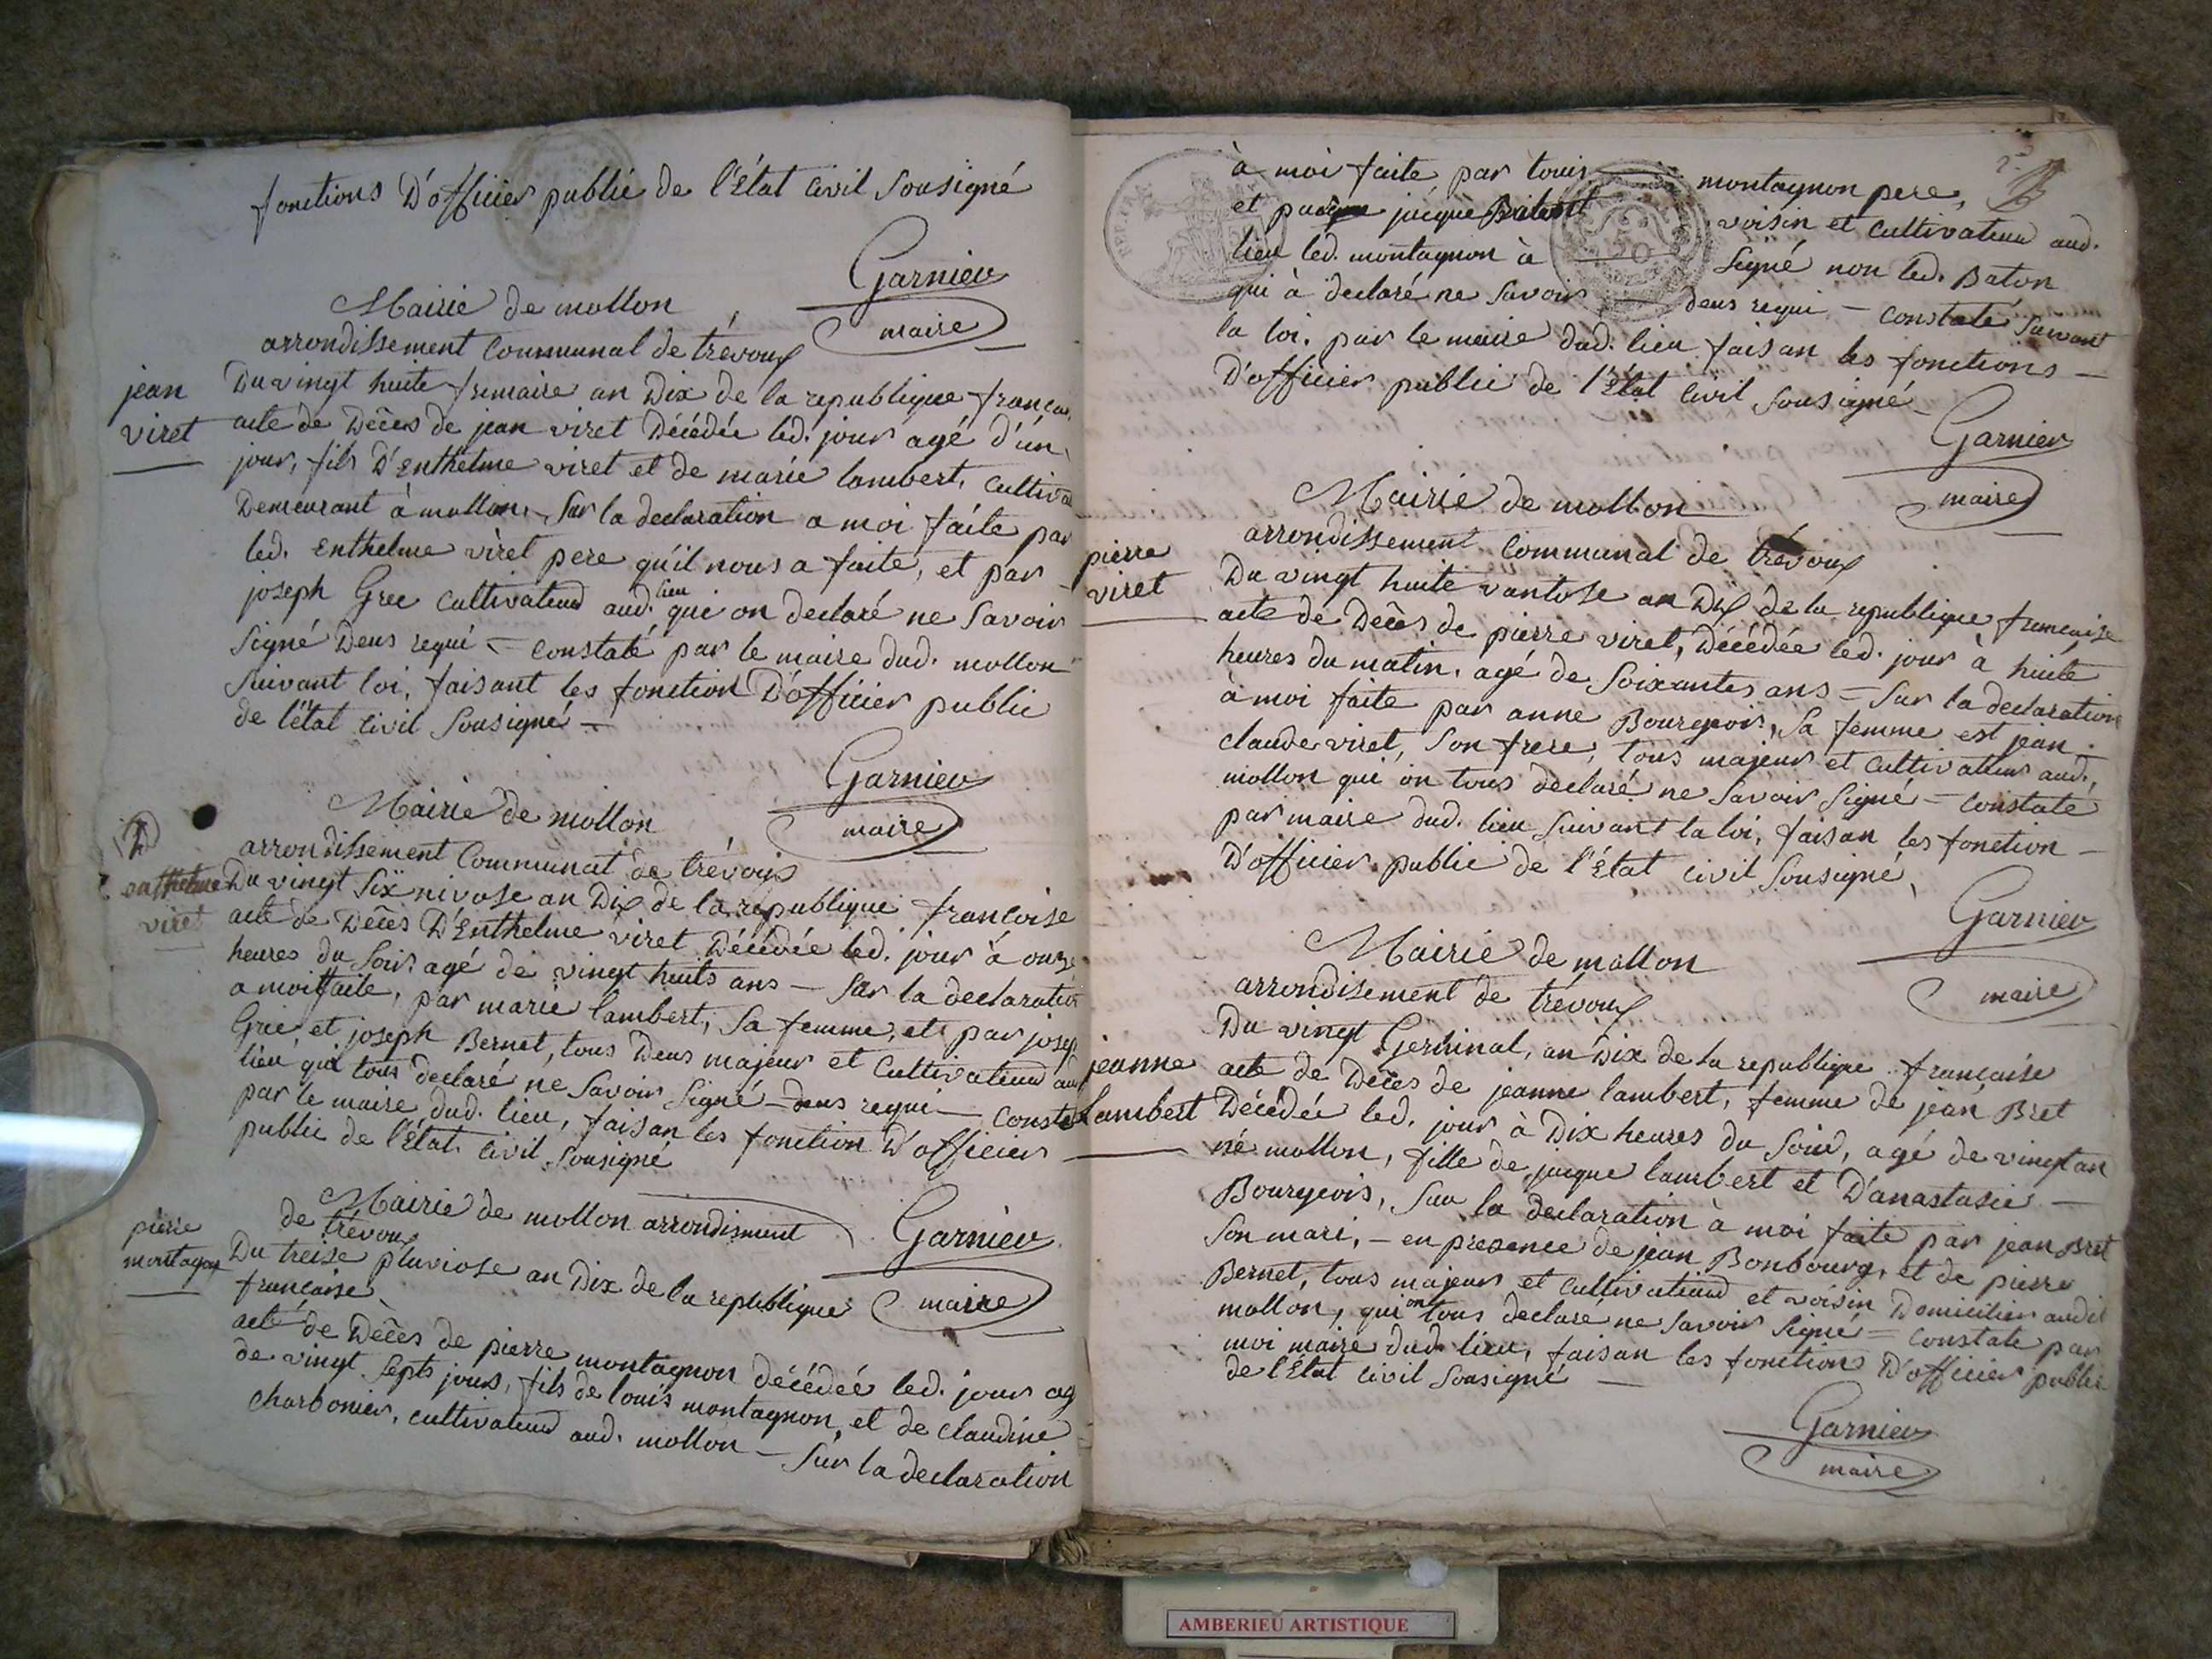 fonctions D'officier public de l'État civil Sousigné
Garnier
maire
Mairie de mollon
arrondissement Communal de trévoux
jean
viret
Du vingt huite frimaire an Dix de la republique françai
acte de Décès de jean viret Décédée led. jour agé d'un
jour, fils D'Enthelme viret et de marie lambert, Cultiva
Demeurant à mollon, Sur la declaration a moi faite par
led. Enthelme viret pere qu'il nous a faite, et par
joseph Gree Cultivateur aud. lieu qui on declaré ne Savoir
Signé Deus requi - constaté par le maire dud. mollon
Suivant loi, faisant les fonction D'officier public
de l'état civil Sousigné -
Garnier
maire
Mairie de mollon
arrondissement Communal de trévoux
enthelme
viret
Du vingt Six nivose an Dix de la republique françoise
acte de Décès D'Enthelme viret Décédée led. jour à onze
heures du Soir. agé de vingt huits ans - Sur la declaration
a moi faite, par marie lambert, Sa femme, et par josep
Grie, et joseph Bernet, tous Deus majeur et Cultivateur aud
lieu qui tous declaré ne Savoir Signé - deus requi - Consta
par le maire dud. lieu, faisan les fonction D'officier
public de l'État civil Sousigné
Garnier
maire
Mairie de mollon arrondisment
de trévoux
pierre
montagno
Du treise pluviose an Dix de la republique
francaise
acte de Décès de pierre montagnon décédeé led. jour ag
de vingt Septs jours, fils de louis montagnon, et de Claudine
Charbonier, cultivateur aud. mollon - Sur la declaration
à moi faite par louis montagnon pere,
et jacque Baton voisin et Cultivateur aud.
lieu led. montagnon à Signé non led. Baton
qui à declaré ne Savoir deus requi - constaté Suivant
la loi. par le maire dud. lieu faisan les fonctions -
D'officier public de l'État civil Sousigné
Garnier
maire
Mairie de mollon
arrondissement Communal de trévoux
pierre
viret
Du vingt huite vantose an Dix de la republique francaise
acte de Décès de pierre viret, Décédée led. jour à huite
heures du matin. agé de Soixantes ans - Sur la declaration
à moi faite par anne Bourgeois, Sa femme est jean
claude viret, Son frere, tous majeur et Cultivateur aud.
mollon qui on tous declaré ne Savoir Signé - constaté
par maire dud. lieu Suivant la loi, faisan les fonction -
D'officier public de l'État civil Sousigné
Garnier
maire
Mairie de mollon
arrondisement de trévoux
jeanne
Lambert
Du vingt Germinal, an Dix de la republique francaise
acte de Décès de jeanne lambert, femme de jean Bret
Décédée led. jour à Dix heures du Soir, agé de vingt an
né mollon, fille de jacque lambert et D'anastasie -
Bourgeois, Sur la déclaration à moi faite par jean Bret
Son mari, - en presence de jean Bonbourg, et de pierre
Bernet, tous majeur et Cultivateur et voisin Domicilier audit
mollon, qui on tous declaré ne Savoir Signé - constate par
moi maire dud. lieu, faisan les fonctions D'officier public
de l'État civil Sousigné
Garnier
maire
AMBERIEU ARTISTIQUE